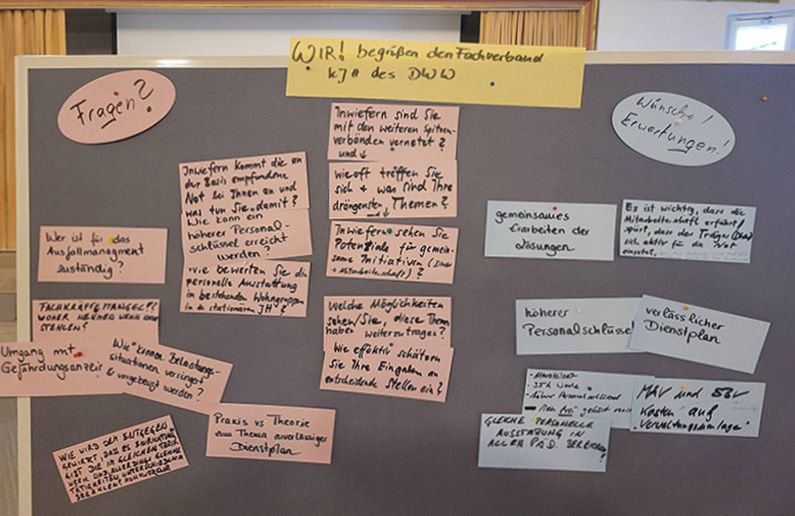 WIR! begrüßen den Fachverband
KJH des DWW
Fragen?
Wünsche!
Erwartungen!
Wer ist für das
Ausfallmanagment
zuständig?
FACHKRÄFTEMANGEL?!
WOHER NEHMEN WENN
STEHLEN?
Umgang mit
Gefährdungsanzei
Wie können Belastungs-
situationen verringert
& vorgebeugt werden?
WIE WIRD DEM ENTGEGEN
GEWIRKT, DASS ES EINRICHTUNG
GIBT DIE IN GLEICHEN TARIF
UND ALLERDINGS GLEICHE
TÄTIGKEITEN UNTERSCHIEDLICH
Inwiefern kommt die an
der Basis empfundene
Not bei Ihnen an und
was tun Sie damit?
Wie kann ein
höherer Personal-
schlüssel erreicht
werden?
wie bewerten Sie die
personelle Ausstattung
in bestehenden Wohngruppen
in der stationären JH?
Praxis vs Theorie
zum Thema zuverlässiger
Dienstplan
Inwiefern sind Sie
mit den weiteren Spitzen-
verbänden vernetzt?
und ↓
wie oft treffen Sie
sich + was sind Ihre
drängensten Themen?
Inwiefern sehen Sie
Potentiale für gemein-
same Initiativen (Dww
+ Mitarbeiterschaft)?
Welche Möglichkeiten
sehen Sie, diese Them
haben weiterzutragen?
Wie effektiv schätzen
Sie Ihre Eingaben an
entscheidende Stellen ein?
gemeinsames
Erarbeiten der
Lösungen
Es ist wichtig, dass die
Mitarbeiterschaft erfährt/
spürt, dass der Träger (Dww)
sich aktiv für die Not
einsetzt,
höherer
Personalschlüssel
verlässlicher
Dienstplan
35h Woche
höher Personalschlüssel
MAV und SBV
Kosten auf
Verwaltungsumlage
GLEICHE PERSONELLE
AUSSTATTUNG IN
ALLEN PÄD. BEREICHEN